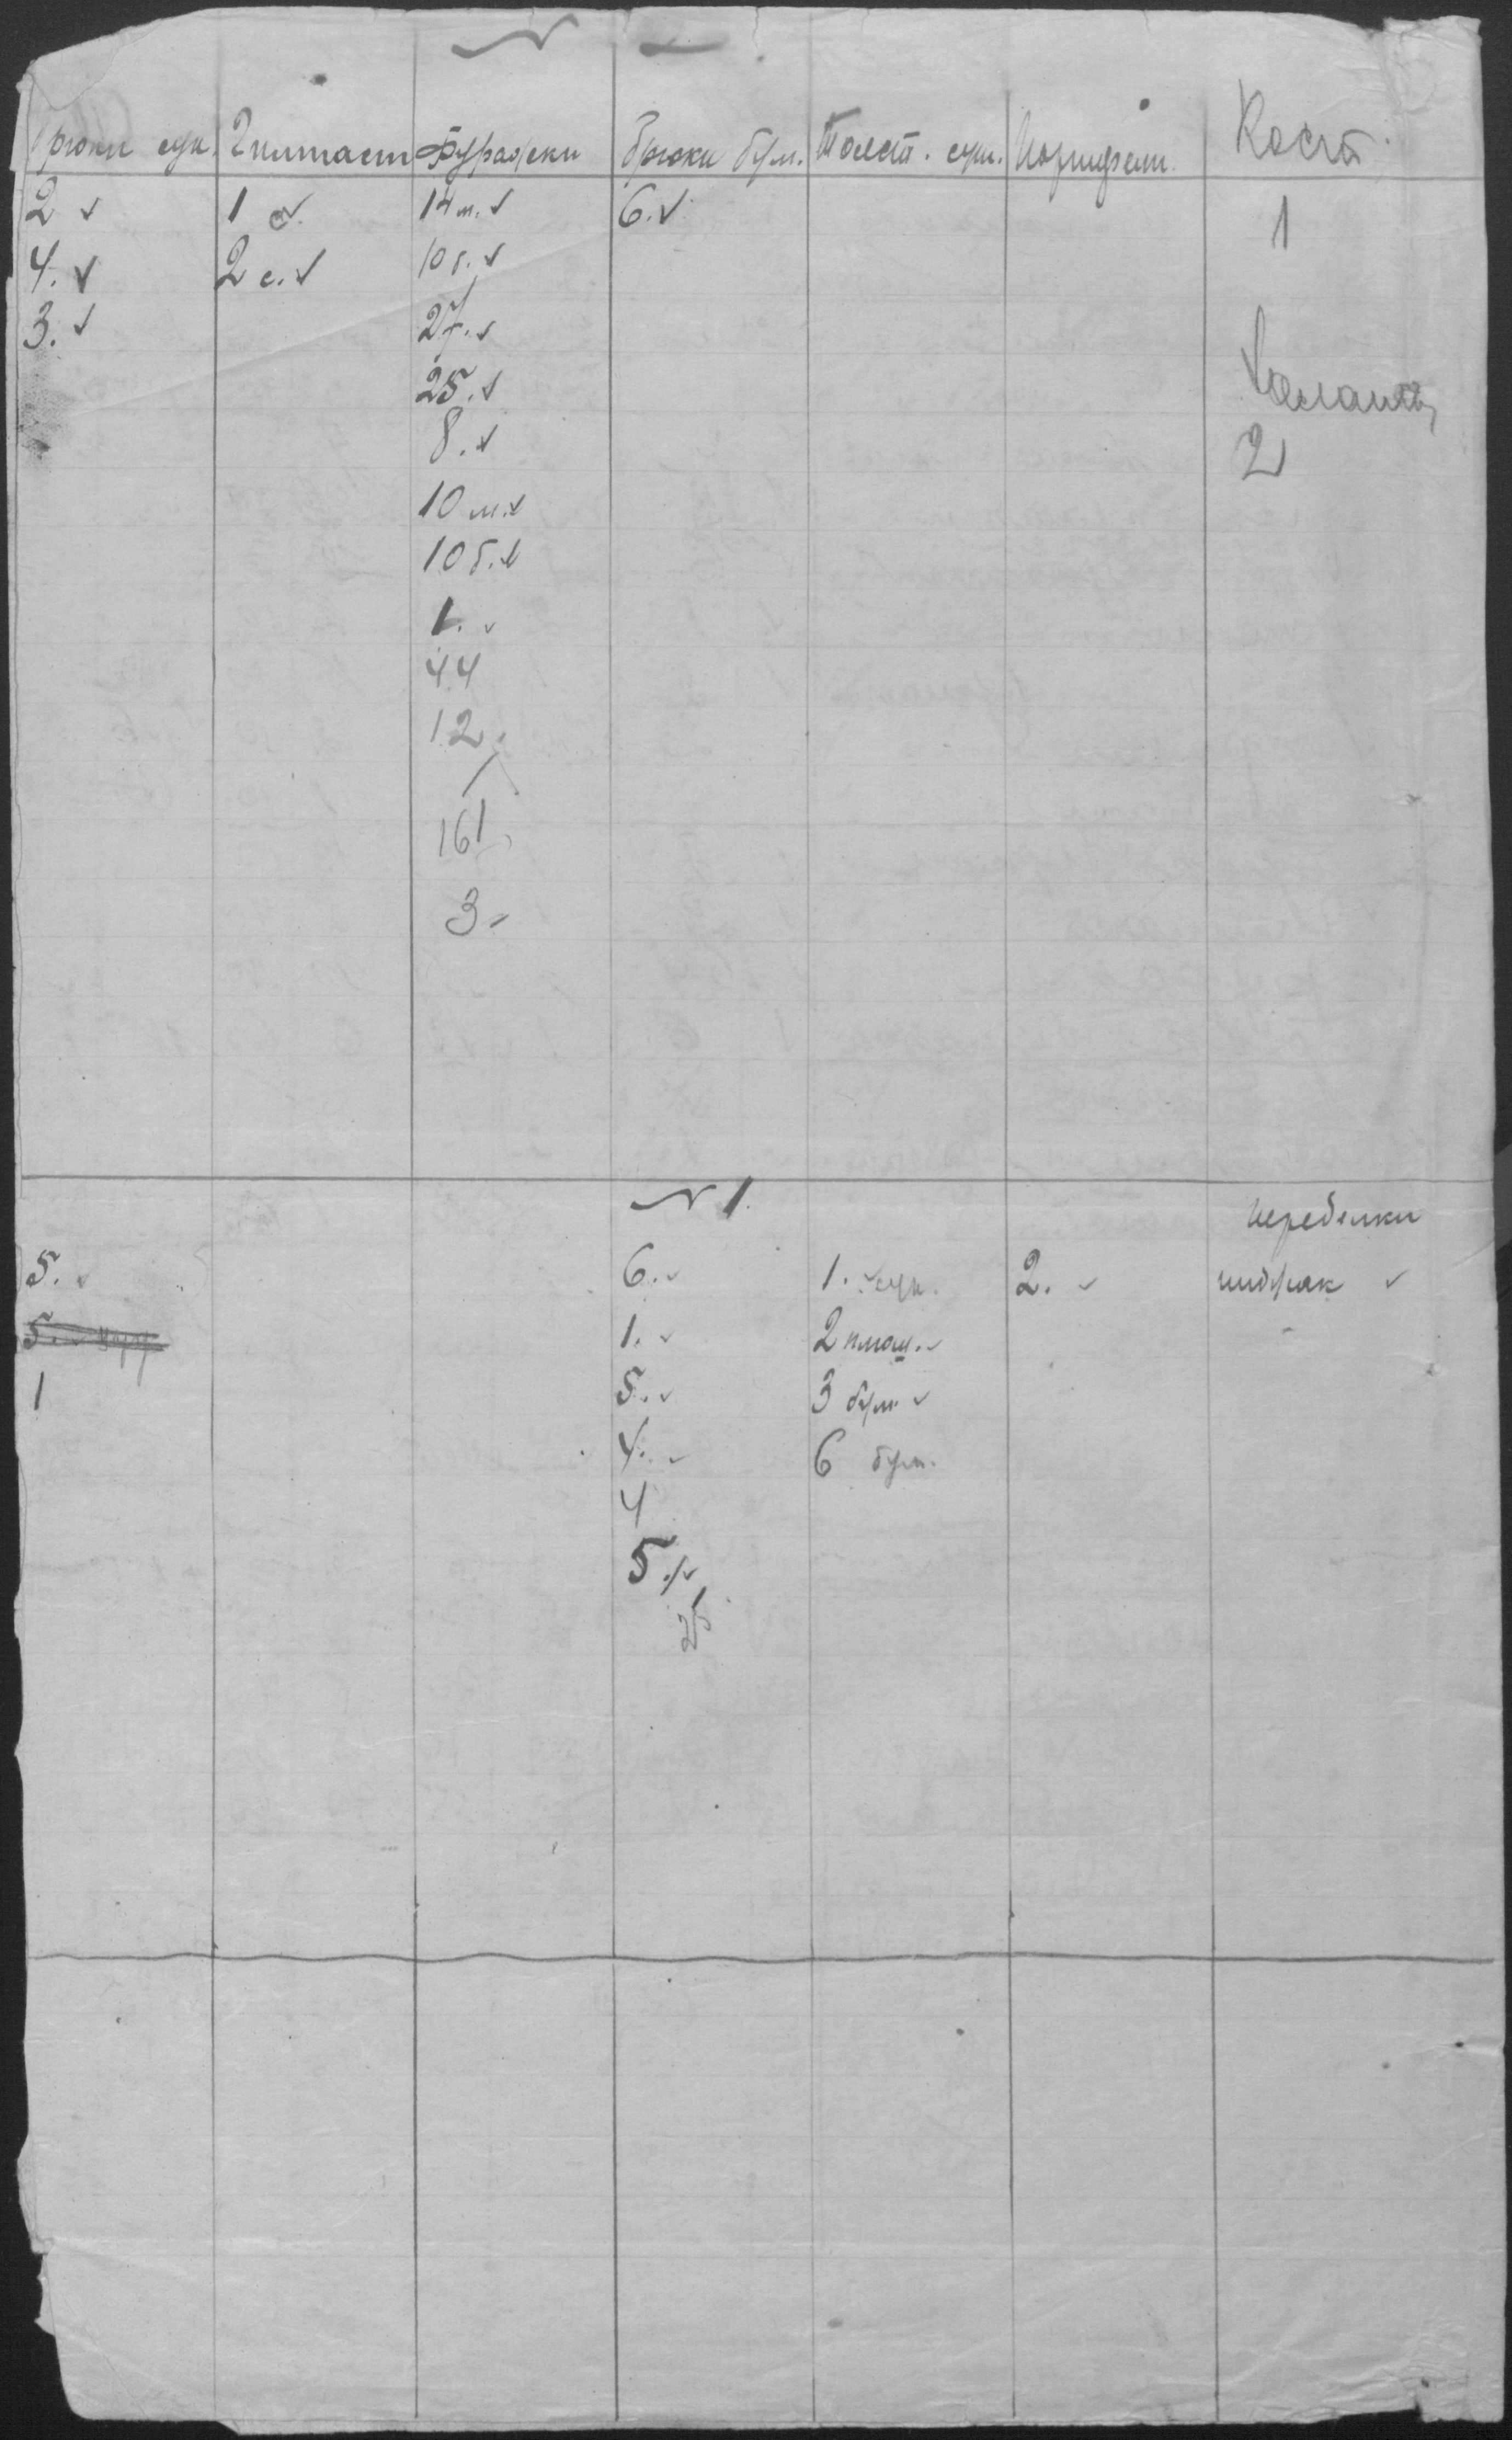 N —
Брюки сук. Гимнаст Фуражки Брюки бум. Толст. сук. Кост.
2 ✓ 1 с ✓ 14 м. ✓ 6. ✓ 1
4. ✓ 2 с. ✓ 10 б. ✓
3. ✓ 27. ✓
25. ✓
8. ✓ 2
10 м. ✓
10 б. ✓
1. ✓
44
12.
161
3-
N 1.
переделки
5. ✓ 6. ✓ 1. ✓ сук. 2. ✓ пиджак ✓
5. ✓ 1. ✓ 2 ✓
1 5. ✓ 3 бум. ✓
4. ✓ 6 бум.
4
5. ✓
25